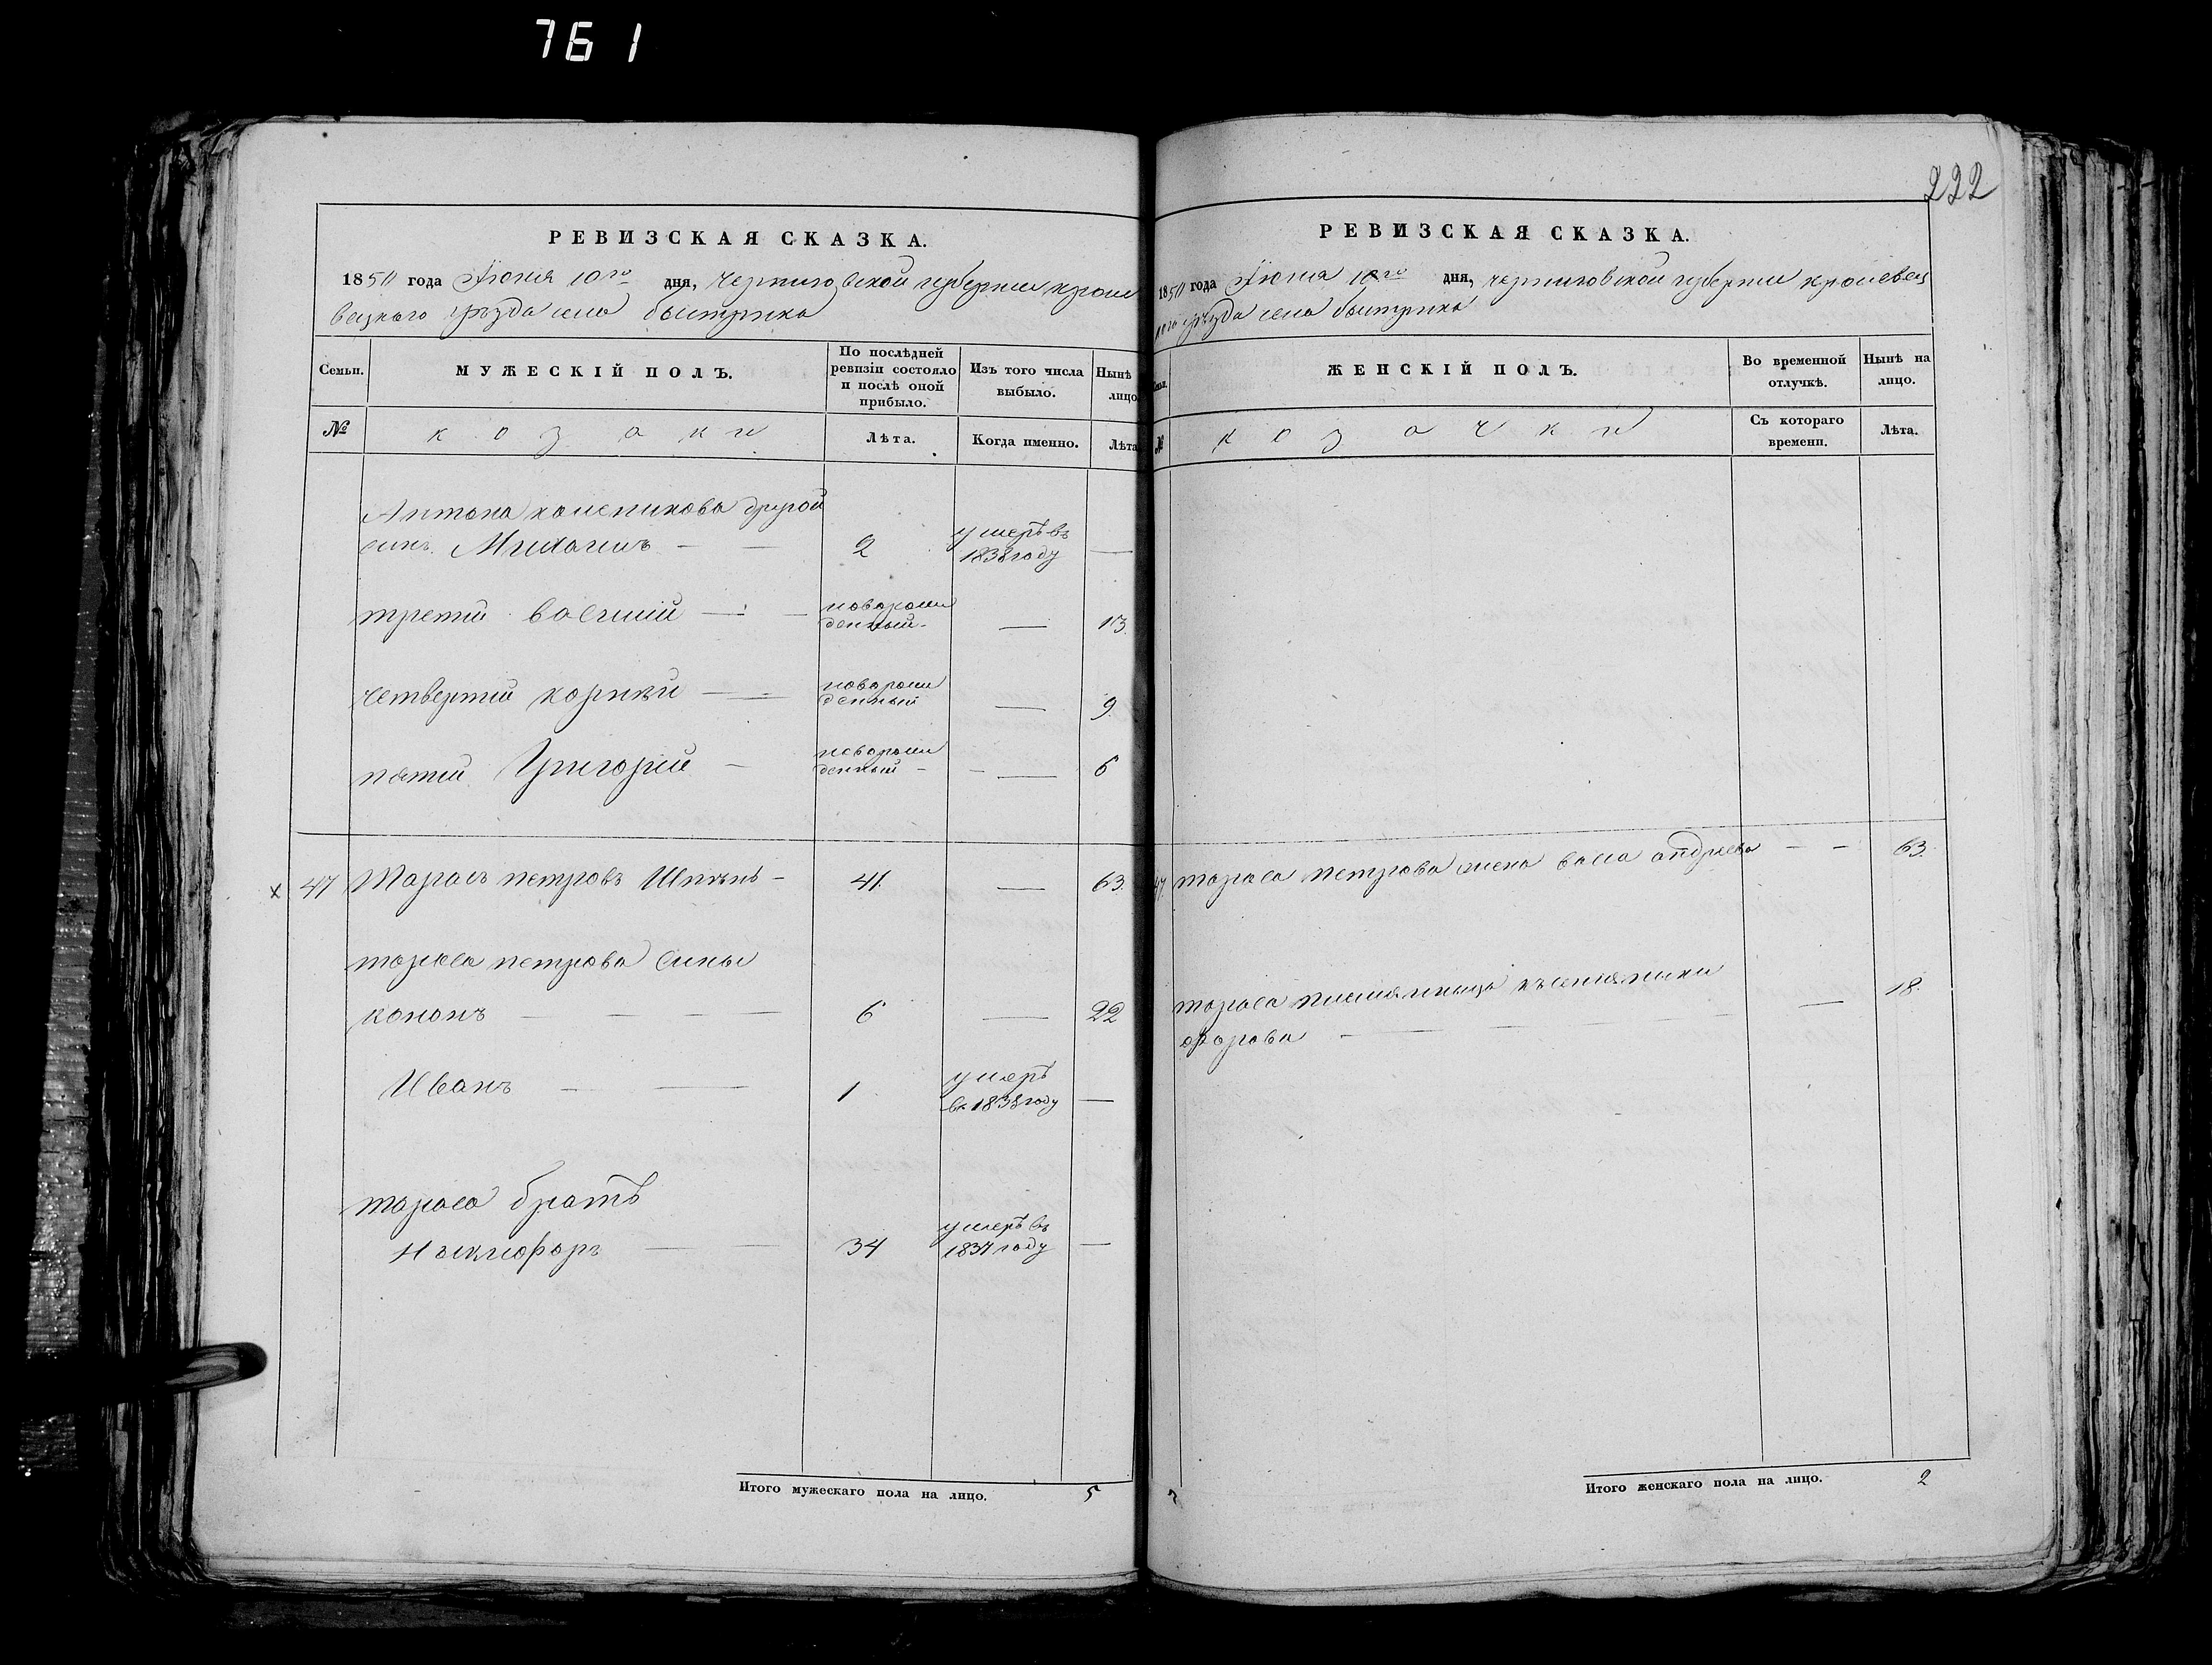 761
222
РЕВИЗСКАЯ СКАЗКА.
1850 года Іюня 10го дня, Черниговской губерніи кроле
вецкаго уѣзда села быстрика
Семьи.
МУЖЕСКІЙ ПОЛЪ.
По послѣдней ревизіи состояло и послѣ оной прибыло.
Изъ того числа выбыло.
Нынѣ
лицо
№
козаки
Лѣта.
Когда именно.
Лѣта
Антона другой
синъ Михаилъ — — 2 умеръ въ 1838 году —
третий василий — — новорож денный — 13.
четвертий корнѣй — — новорож денный — 9.
пятий Григорий — новорож денный — — 6
47 Тарасъ петровъ — 41. — 63.
тараса петрова сины
кононъ — — — — 6 — 22
Иванъ — — 1 умеръ въ 1838 году —
тараса братъ
Никифоръ — — 34 умеръ въ 1837 году —
Итого мужескаго пола на лицо. 5
РЕВИЗСКАЯ СКАЗКА.
1850 года Іюня 10го дня, черниговской губерніи кролевец
каго уѣзда села быстрика
ЖЕНСКІЙ ПОЛЪ.
Во временной отлучкѣ.
Нынѣ на лицо.
№
козачки
Съ котораго времени.
Лѣта.
47. тараса петрова жена васса андреева — — 63.
тараса племянница ксения ники
форова — — — — 18.
Итого женскаго пола на лицо. 2